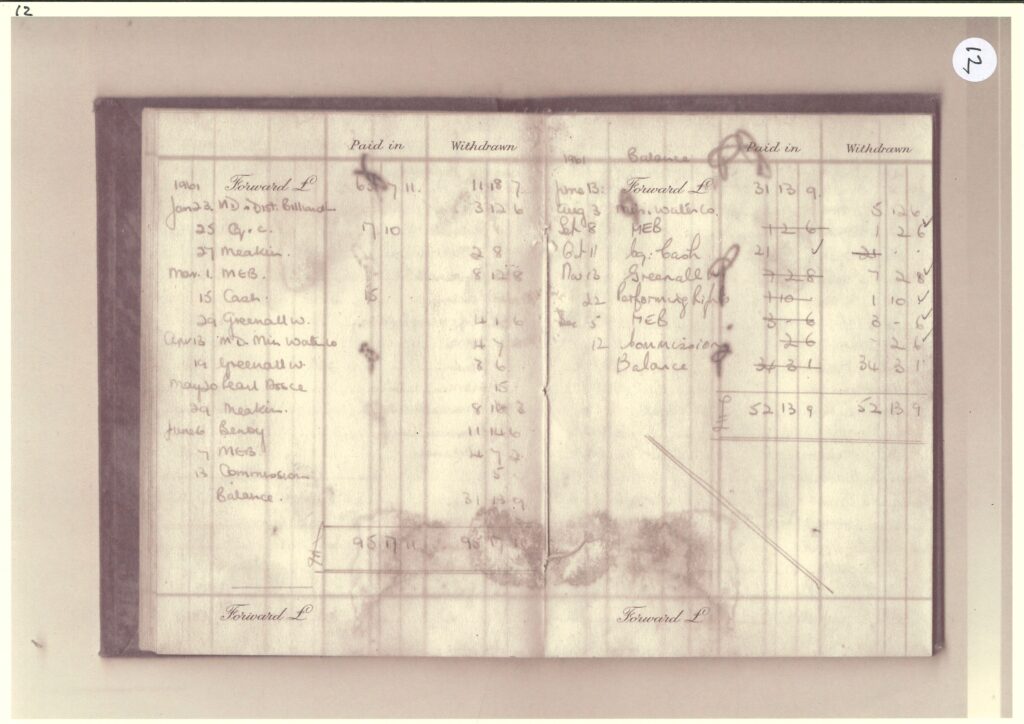 12
12
Paid in Withdrawn
1961 Forward £ 63 17 11. 11 18 7
Jan 23 M.D. & Dist. Billiard 3 12 6
25 17 10
27 Meakin. 2 8
Mar. 1 MEB. 8 12 8
15 Cash 15
29 Greenall W. 4 1 6
Apr 13 M.D. Min Water Co 4 7
14 Greenall W 8 6
May 20 Pearl Assce 15
29 Meakin. 8 3
June 6 11 14 6
7 MEB 4 7 2
13 Commission 5
Balance. 31 13 9
£ 95 17 11. 95 17 11
Forward £
1961 Balance Paid in Withdrawn
June 13. Forward £ 31 13 9.
Aug 3 Min. Water Co. 5 12 6
Sept 8 MEB 1 2 6 1 2 6 ✓
Oct 11 by Cash 21 ✓ 21
Nov 13 Greenall W 7 2 8 7 2 8 ✓
22 Performing Rights 1 10 1 10 ✓
Dec 5 MEB 3 - 6 3 - 6 ✓
12 Commission 2 6 - 2 6 ✓
Balance 34 3 1 34 3 1
£ 52 13 9 52 13 9
Forward £